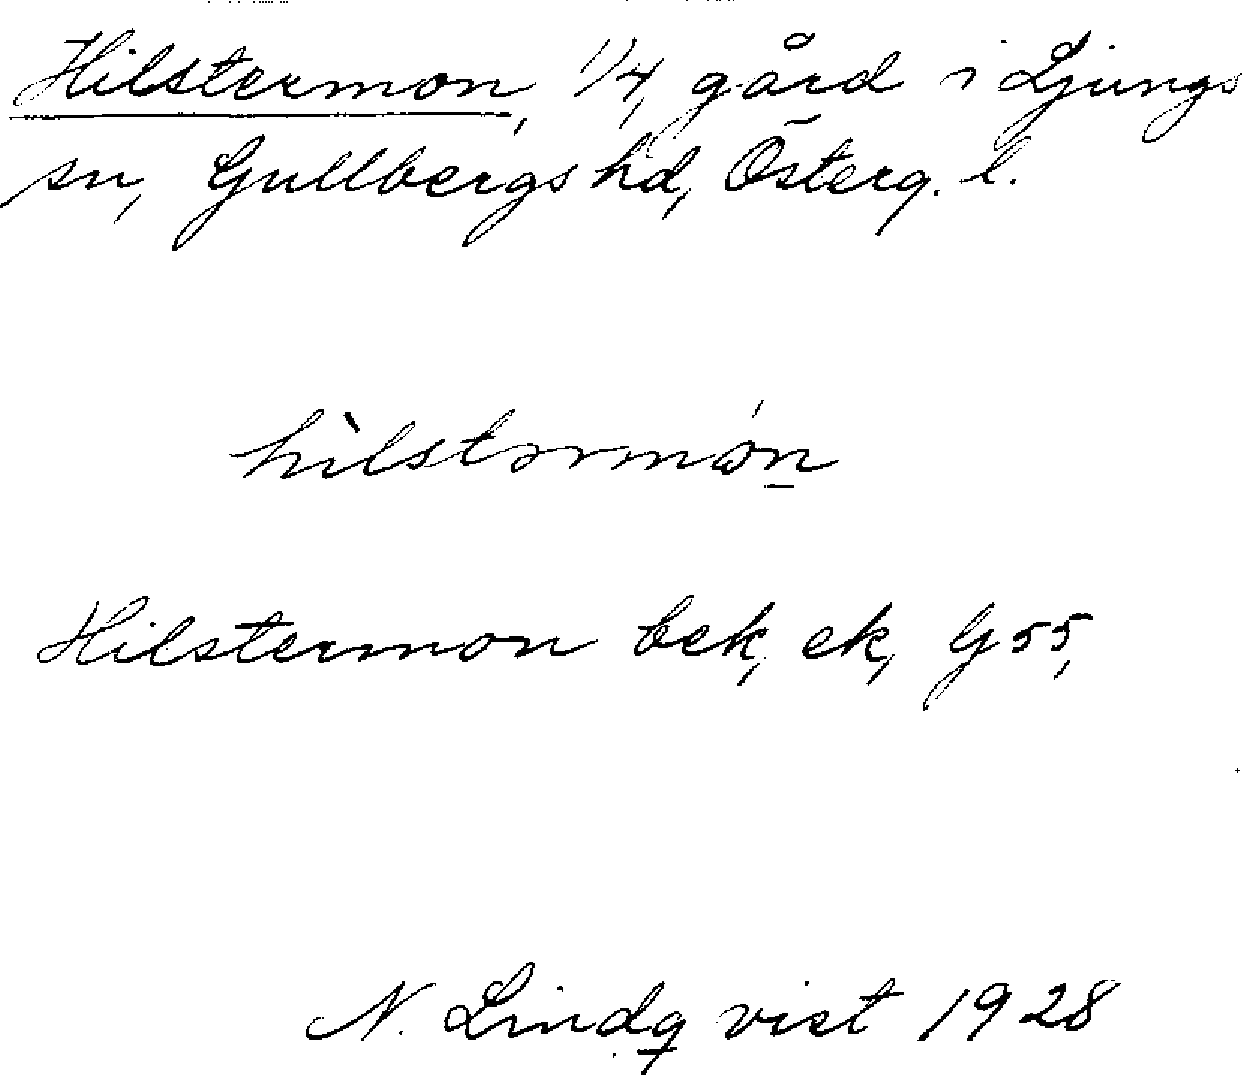 Hilstermon, 1/4, gård i Ljungs
sn, Gullbergs hd, Österg. l.
hìlstərmón
Hilstermon bek, ek, G 55,
N. Lindqvist 1928